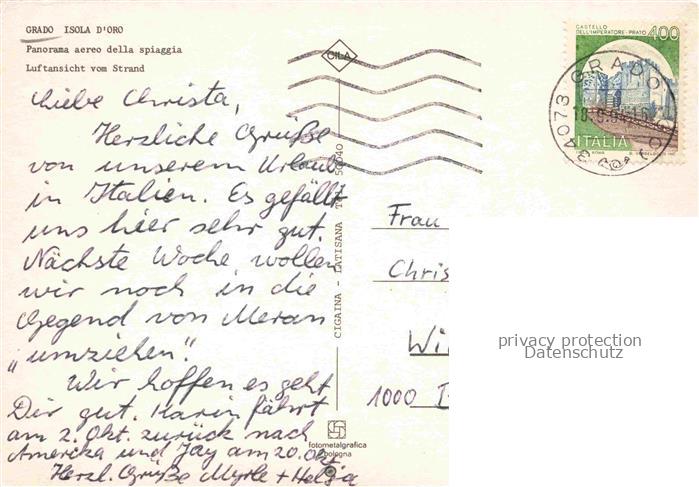 GRADO ISOLA D'ORO
Panorama aereo della spiaggia
Luftansicht vom Strand
Liebe Christa,
Herzliche Grüße
von unserem Urlaub
in Italien. Es gefällt
uns hier sehr gut.
Nächste Woche wollen
wir noch in die
Gegend von Meran
"umziehen".
Wir hoffen es geht
Dir gut. Karin fährt
am 2. Okt. zurück nach
Amerika und Jay am 20. Okt.
Herzl. Grüße Myrle + Helga
CILA
CIGAINA - LATISANA
fotometalgrafica
bologna
CASTELLO
DELL'IMPERATORE - PRATO
400
ITALIA
ROMA
34073 GRADO (GO)
Frau
Chris
Wi
1000
privacy protection
Datenschutz